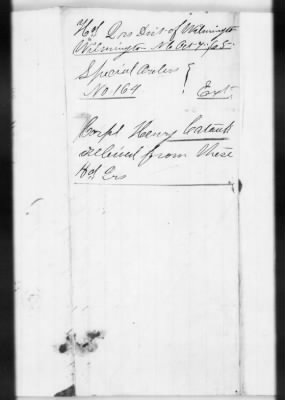 Hd Qrs Dist of Wilmington
Wilmington N.C. Oct 7. 65-
Special Orders
No. 164 Ext.
Corpl Henry
relieved from these
Hd Qrs